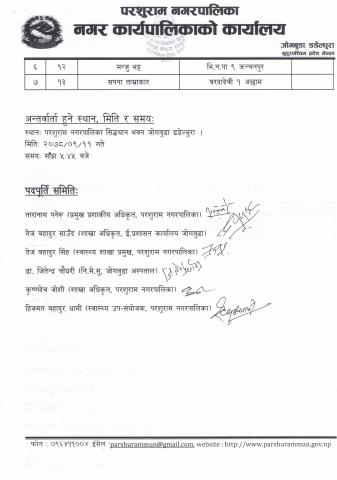 परशुराम नगरपालिका
नगर कार्यपालिकाको कार्यालय
जोगबुडा, डडेल्धुरा
सुदूरपश्चिम प्रदेश, नेपाल
६ १२ मन्जु भट्ट भि.न.पा ९ कन्चनपुर
७ १३ सपना ताम्राकार बरदादेवी १ अछाम
अन्तर्वार्ता हुने स्थान, मिति र समयः
स्थानः परशुराम नगरपालिका सिद्धथान भवन जोगबुडा डडेल्धुरा ।
मितिः २०७८/०९/११ गते
समयः साँझ ५:४५ बजे
पदपूर्ति समितिः
तारानाथ पनेरु (प्रमुख प्रशाकीय अधिकृत, परशुराम नगरपालिका)
तेज बहादुर साउँद (शाखा अधिकृत, ई.प्रशासन कार्यालय जोगबुडा)
तेज बहादुर सिंह (स्वास्थ्य शाखा प्रमुख, परशुराम नगरपालिका)
डा. जितेन्द्र चौधरी (नि.मे.सु, जोगबुडा अस्पताल)
कृष्णदेव जोशी (शाखा अधिकृत, परशुराम नगरपालिका)
हिक्मत बहादुर धामी (स्वास्थ्य उप-संयोजक, परशुराम नगरपालिका)
फोन : ०९६४११००४ ईमेल :parshurammun@gmail.com, website : http://www.parshurammun.gov.np